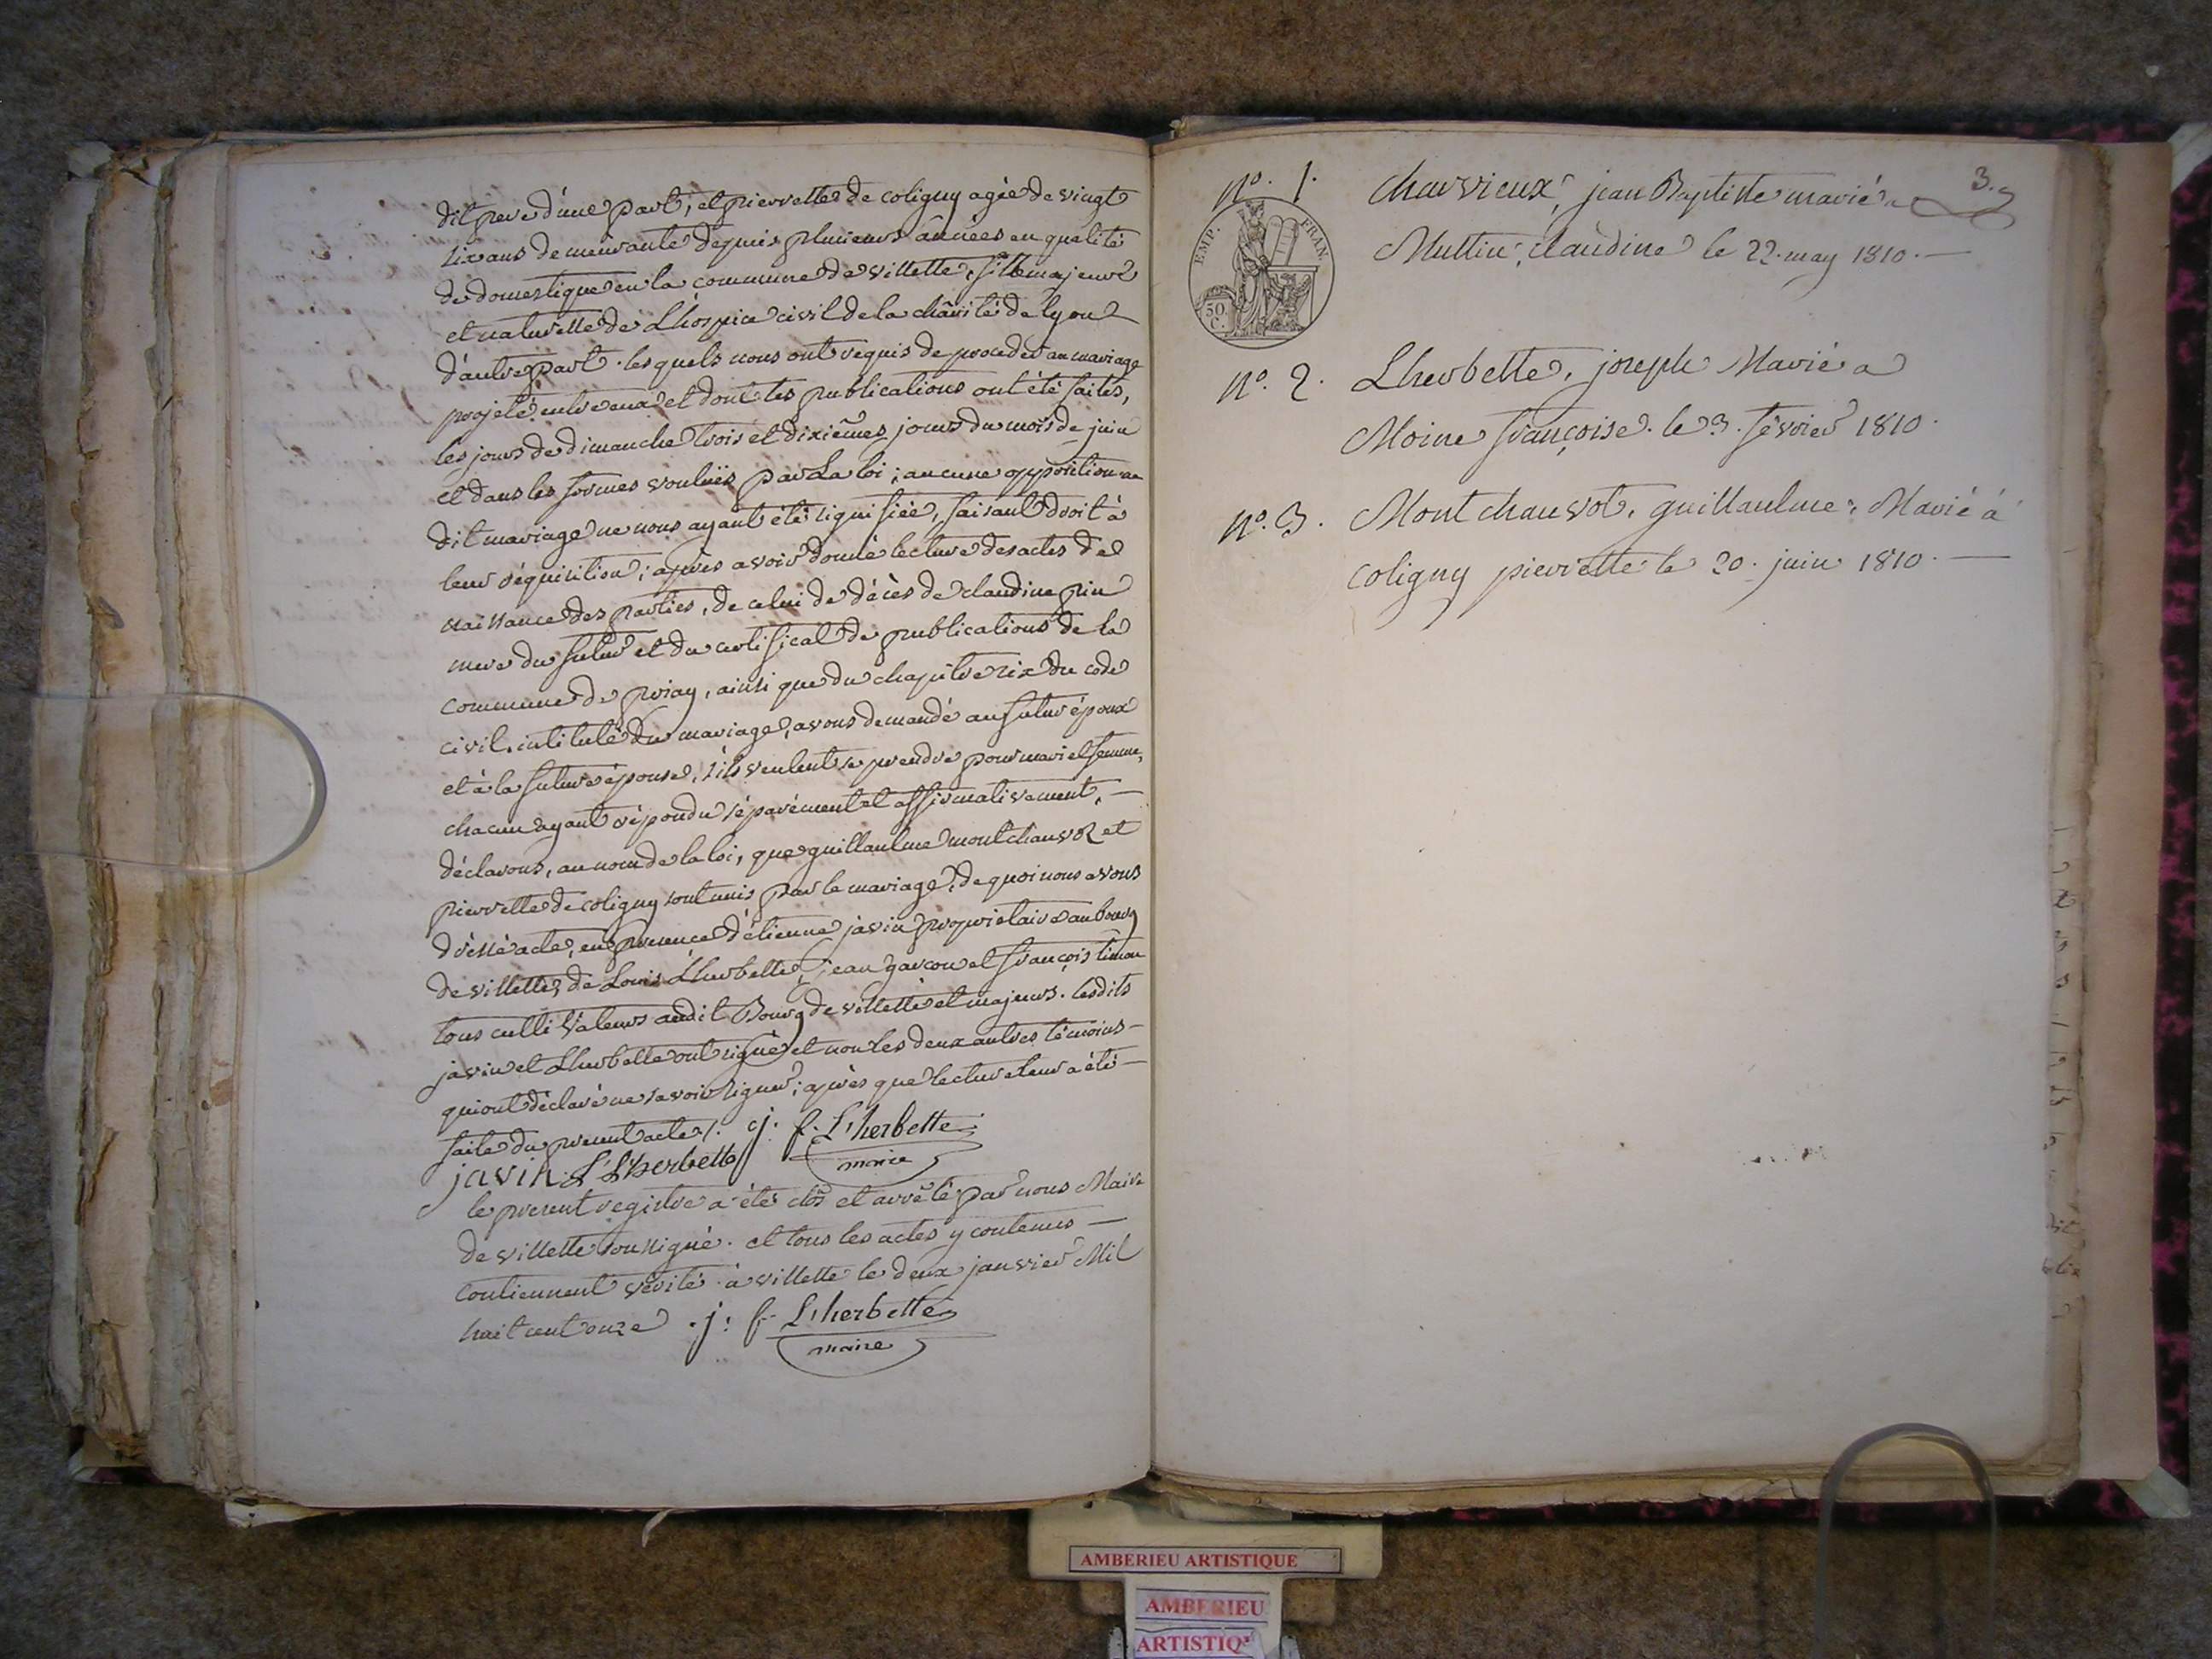 dit pere d'une part, et pierrette de coligny agée de vingt
six ans demeurante depuis plusieurs années en qualité
de domestique en la commune de villette, fille majeure
et naturelle de L'hospice civil de la charité de lyon
d'autre part. lesquels nous ont requis de proceder au mariage
projeté entre eux et dont les publications ont été faites,
les jours de dimanche trois et dixièmes jours du mois de juin
et dans les formes vouluës par La loi; aucune opposition au
dit mariage ne nous ayant été signifiée, faisant droit à
leur réquisition; après avoir donné lecture des actes de
naissance des parties, de celui de décès de claudine pin
mere du futur et du certificat de publications de la
commune de priay, ainsi que du chapitre six du code
civil, intitulé du mariage, avons demandé au futur époux
et à la future épouse, s'ils veulent se prendre pour mari et femme,
chacun ayant répondu séparément et affirmativement, —
déclarons, au nom de la loi, que guillaulme montchauvot et
pierrette de coligny sont unis par le mariage, de quoi nous avons
dressé acte, en presence d'étienne javin proprietaire au bourg
de villette, de Louis Lherbette, jean garcon et françois timon
tous cultivateurs audit Bourg de villette et majeurs. lesdits
javin et Lherbette ont signé et non les deux autres témoins —
qui ont déclaré ne savoir signer; après que lecture leur a été —
faite du present acte /. j. f. L'herbette
javin L L'herbette maire
le present registre a été clos et arrêté par nous Maire
de villette soussigné. et tous les actes y contenus —
contiennent vérité. à villette le deux janvier Mil
huit cent onze . j: f. L'herbette
maire
3.
N°. 1. charvieux, jean Baptiste marié a
Muttin, claudine le 22. may 1810. —
EMP. FRAN.
50 C.
N°. 2. Lherbette, joseph Marié a
Moine françoise. le 3. février 1810.
N°. 3. Montchauvot, guillaulme, Marié à
coligny pierrette le 20. juin 1810. —
AMBERIEU ARTISTIQUE
AMBERIEU
ARTISTIQ